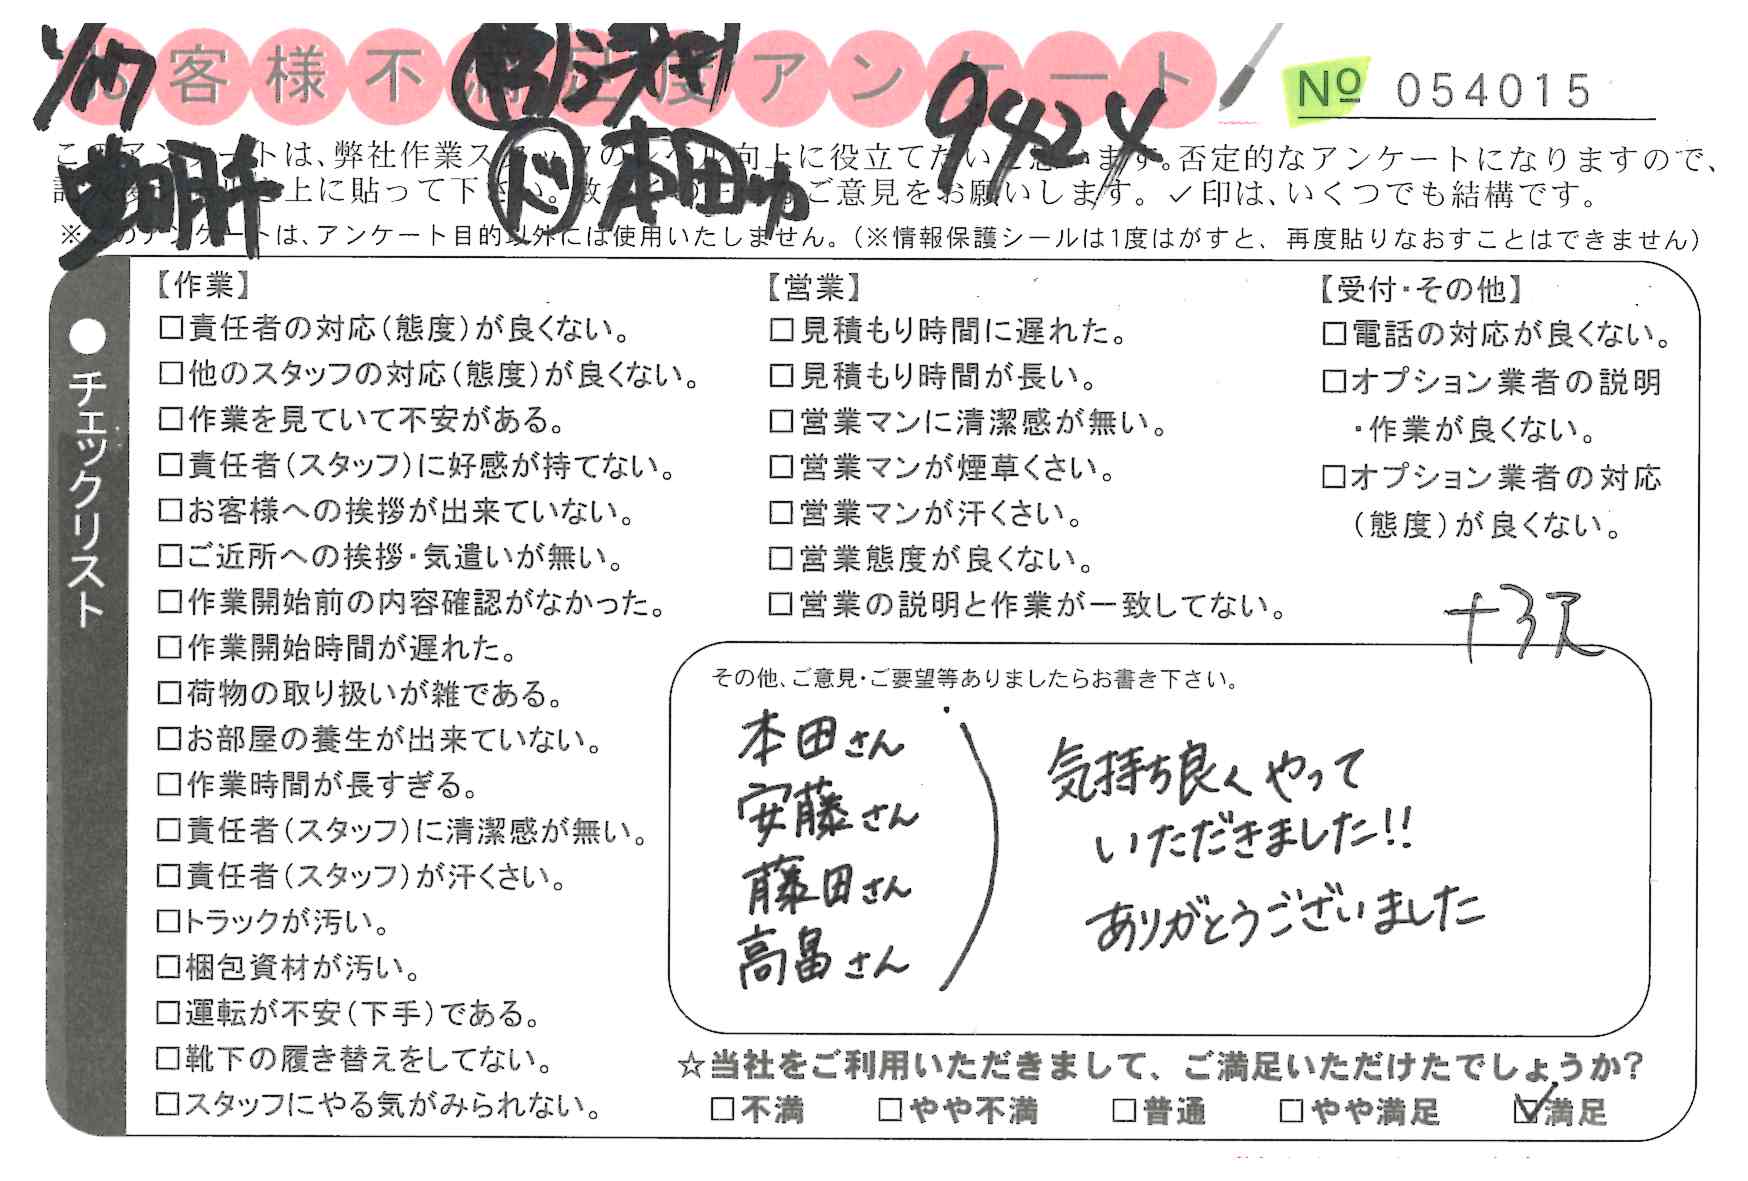 お客様不満足度アンケート
1/17
9424
No 054015
本田
このアンケートは、弊社作業スタッフのレベル向上に役立てたいと思います。否定的なアンケートになりますので、
上に貼って下さい。 ご意見をお願いします。✓印は、いくつでも結構です。
※このアンケートは、アンケート目的以外には使用いたしません。(※情報保護シールは1度はがすと、再度貼りなおすことはできません)
●チェックリスト
【作業】
□責任者の対応(態度)が良くない。
□他のスタッフの対応(態度)が良くない。
□作業を見ていて不安がある。
□責任者(スタッフ)に好感が持てない。
□お客様への挨拶が出来ていない。
□ご近所への挨拶・気遣いが無い。
□作業開始前の内容確認がなかった。
□作業開始時間が遅れた。
□荷物の取り扱いが雑である。
□お部屋の養生が出来ていない。
□作業時間が長すぎる。
□責任者(スタッフ)に清潔感が無い。
□責任者(スタッフ)が汗くさい。
□トラックが汚い。
□梱包資材が汚い。
□運転が不安(下手)である。
□靴下の履き替えをしてない。
□スタッフにやる気がみられない。
【営業】
□見積もり時間に遅れた。
□見積もり時間が長い。
□営業マンに清潔感が無い。
□営業マンが煙草くさい。
□営業マンが汗くさい。
□営業態度が良くない。
□営業の説明と作業が一致してない。
【受付・その他】
□電話の対応が良くない。
□オプション業者の説明
・作業が良くない。
□オプション業者の対応
(態度)が良くない。
その他、ご意見・ご要望等ありましたらお書き下さい。
本田さん
安藤さん
藤田さん
高畠さん
気持ち良くやって
いただきました!!
ありがとうございました
☆当社をご利用いただきまして、ご満足いただけたでしょうか?
□不満 □やや不満 □普通 □やや満足 ☑満足